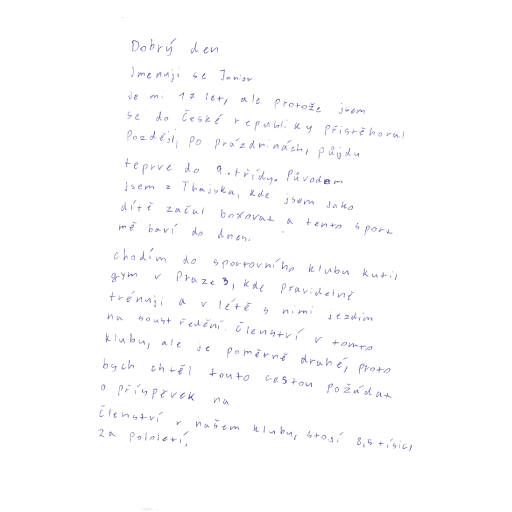 Dobrý den
Jmenuji se Junior
Je mi 17 let, ale protože jsem
se do České republiky přistěhoval
později, po prázdninách, půjdu
teprve do 9. třídy. Původem
jsem z Thajska, kde jsem jako
dítě začal boxovat a tento sport
mě baví do dnes.
chodím do sportovního klubu kutil
gym v Praze 3, kde pravidelně
trénuji a v létě s nimi jezdím
na soustředění. Členství v tomto
klubu, ale je poměrně drahé, proto
bych chtěl touto cestou požádat
o příspěvek na
členství v našem klubu, stojí 8,5 tisíc,
za pololetí,